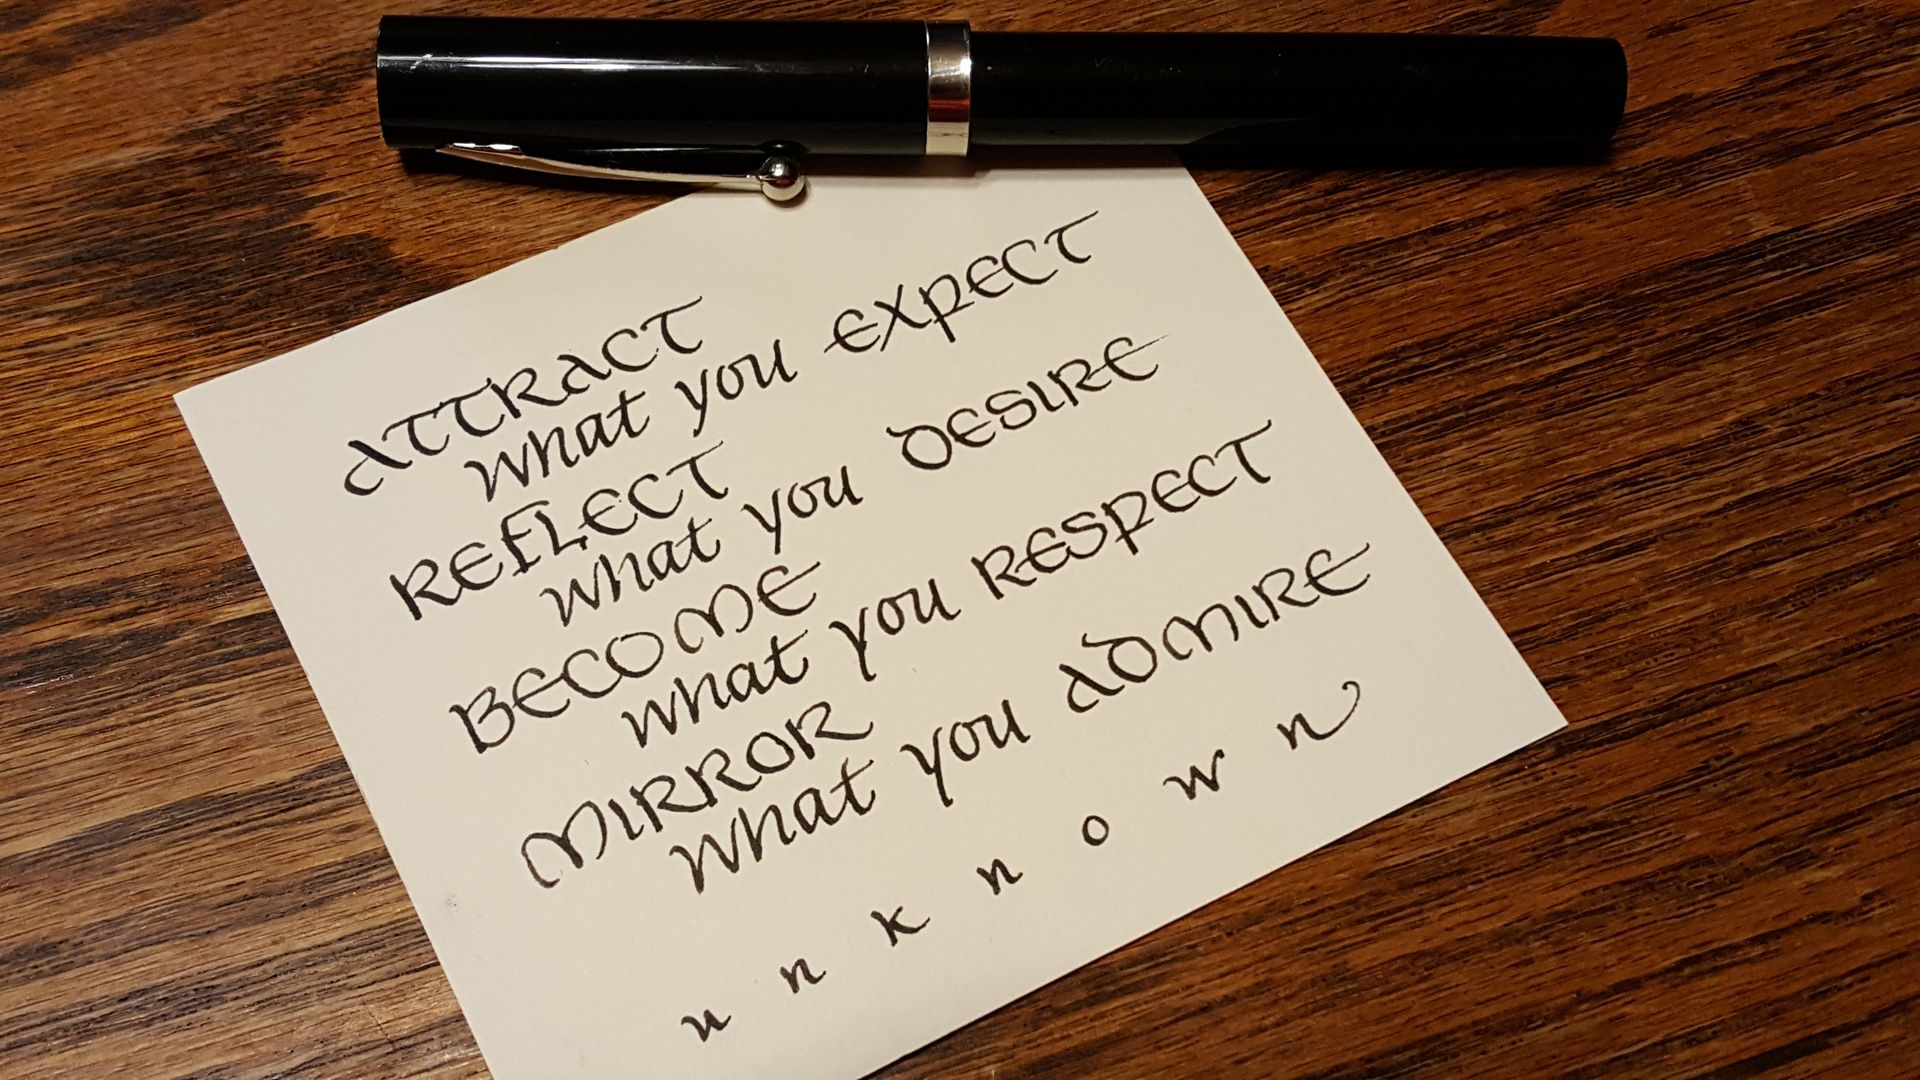 ATTRACT
what you EXPECT
REFLECT
what you DESIRE
BECOME
what you RESPECT
MIRROR
what you ADMIRE
unknown